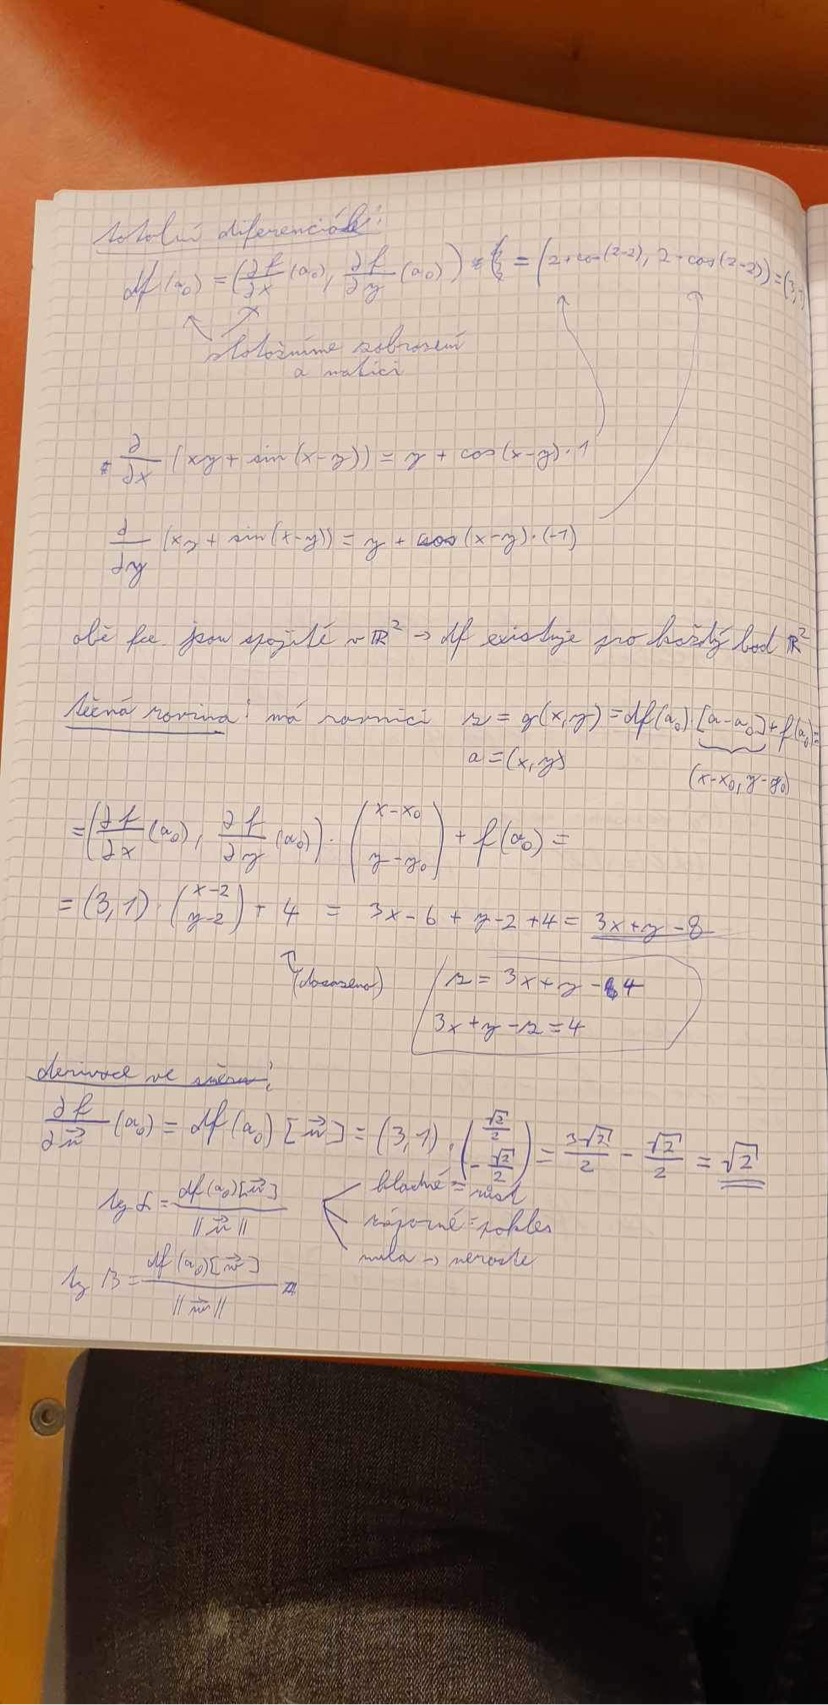 totální diferenciál:
df(a₀) = (∂f/∂x (a₀), ∂f/∂y (a₀)) = (2+cos(2-2), 2-cos(2-2)) = (3,1)
ztotožníme zobrazení
a matici
∂/∂x (xy + sin(x-y)) = y + cos(x-y)·1
∂/∂y (xy + sin(x-y)) = y + cos(x-y)·(-1)
obě fce jsou spojité v ℝ² → df existuje pro každý bod ℝ²
tečná rovina: má rovnici z = g(x,y) = df(a₀)·[a-a₀] + f(a₀) =
a = (x,y)
(x-x₀, y-y₀)
= (∂f/∂x (a₀), ∂f/∂y (a₀)) · (x-x₀ y-y₀) + f(a₀) =
= (3,1) · (x-2 y-2) + 4 = 3x-6 + y-2 +4 = 3x+y-8
(dosazeno)
z = 3x+y-4
3x+y-z=4
derivace ve směru:
∂f/∂v⃗ (a₀) = df(a₀)[v⃗] = (3,1) · (√2/2 -√2/2) = 3√2/2 - √2/2 = √2
tg α = df(a₀)[v⃗] / ||v⃗||
kladné = růst
záporné = pokles
nula → neroste
tg β = df(a₀)[w⃗] / ||w⃗|| =